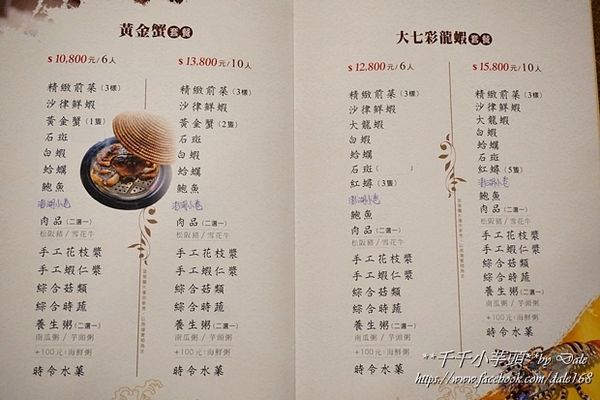 黃金蟹套餐
$10,800元/6人
精緻前菜(3樣)
沙律鮮蝦
黃金蟹(1隻)
石斑
白蝦
蛤蠣
鮑魚
澎湖小卷
肉品(二選一)
松阪豬/雪花牛
手工花枝漿
手工蝦仁漿
綜合菇類
綜合時蔬
養生粥(二選一)
南瓜粥/芋頭粥
+100元:海鮮粥
時令水菓
$13,800元/10人
精緻前菜(3樣)
沙律鮮蝦
黃金蟹(2隻)
石斑
白蝦
蛤蠣
鮑魚
澎湖小卷
肉品(二選一)
松阪豬/雪花牛
手工花枝漿
手工蝦仁漿
綜合菇類
綜合時蔬
養生粥(二選一)
南瓜粥/芋頭粥
+100元:海鮮粥
時令水菓
大七彩龍蝦套餐
$12,800元/6人
精緻前菜(3樣)
沙律鮮蝦
大龍蝦
白蝦
蛤蠣
石斑(
紅蟳(3隻)
澎湖小卷
鮑魚
肉品(二選一)
松阪豬/雪花牛
手工花枝漿
手工蝦仁漿
綜合菇類
綜合時蔬
養生粥(二選一)
南瓜粥/芋頭粥
+100元:海鮮粥
時令水菓
$15,800元/10人
精緻前菜(3樣)
沙律鮮蝦
大龍蝦
白蝦
蛤蠣
石斑
紅蟳(5隻)
澎湖小卷
鮑魚
肉品(二選一)
松阪豬/雪花牛
手工花枝漿
手工蝦仁漿
綜合菇類
綜合時蔬
養生粥(二選一)
南瓜粥/芋頭粥
+100元:海鮮粥
時令水菓
**千千小羊頭**by Dale
https://www.facebook.com/dale168